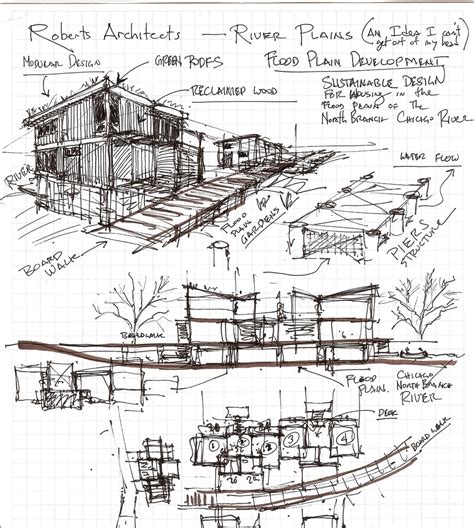 Roberts Architects — River Plains (An Idea I can't
get out of my head)
Modular Design
Green Roofs
Flood Plain Development
Reclaimed Wood
Sustainable Design
for housing in the
flood plains of the
North Branch Chicago River
Water Flow
River
Flood
Plain
Gardens
Piers
Structure
Board
Walk
Boardwalk
Flood
Plain.
Chicago
North Branch
River
Deck
1
2
3
4
20
20
Board Walk